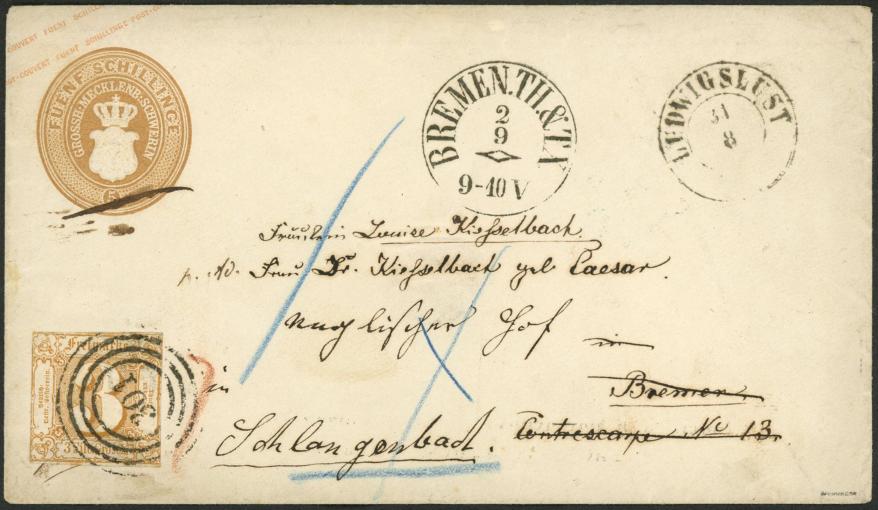 COUVERT FUENF SCHILLINGE POST-
POST-COUVERT FUENF SCHILLINGE
FUENF SCHILLINGE
GROSSH. MECKLENB. SCHWERIN
5
BREMEN. TH. & TX
2
9
9-10 V
LUDWIGSLUST
31
8
Fräulein Louise Kießelbach
p. Ad. Frau Dr. Kießelbach geb Caesar.
Englischer Hof
in
Bremen
Contrescarpe No 13.
in
Schlangenbad.
301
3